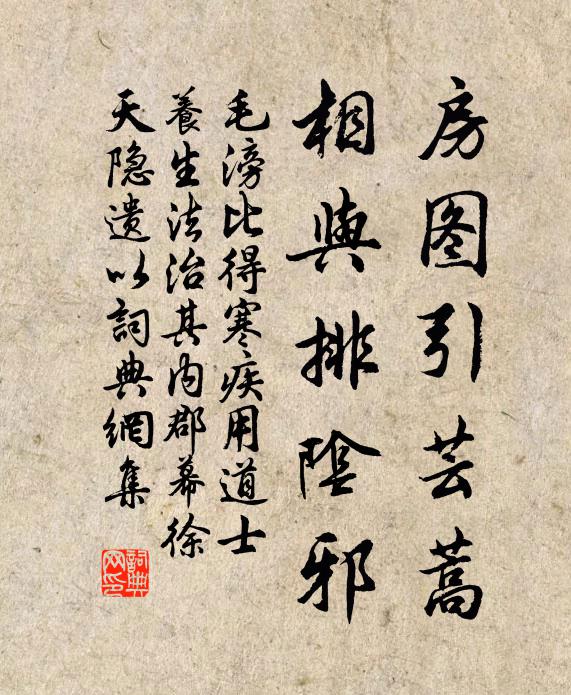 房图引芸蒿
相與排陰邪
毛滂比得寒疾用道士
養生法治其内郡幕徐
天隐遗以詞典網集
詞典网印